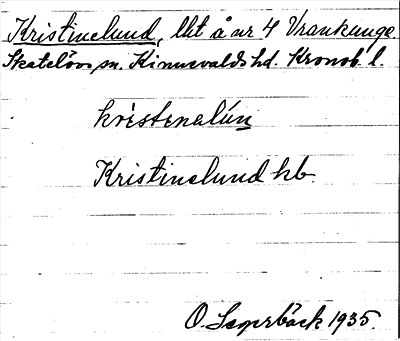 Kristinelund, lht å nr 4 Vrankunge.
Skatelövs sn. Kinnevalds hd. Kronob. l.
kristenalún
Kristinelund hb.
O. 1935.